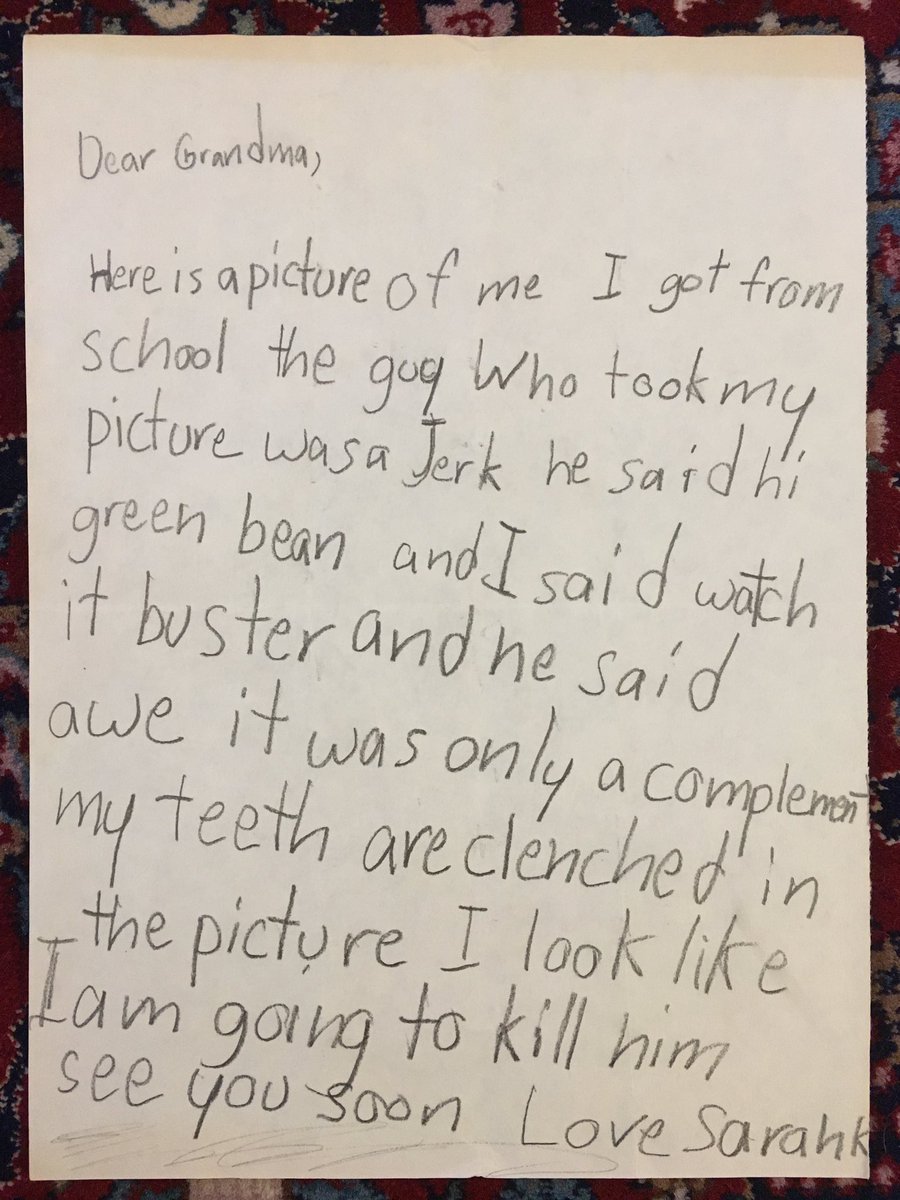 Dear Grandma,
Here is a picture of me I got from
school the guy who took my
picture was a Jerk he said hi
green bean and I said watch
it buster and he said
awe it was only a complement
my teeth are clenched in
the picture I look like
I am going to kill him
see you soon Love Sarah K